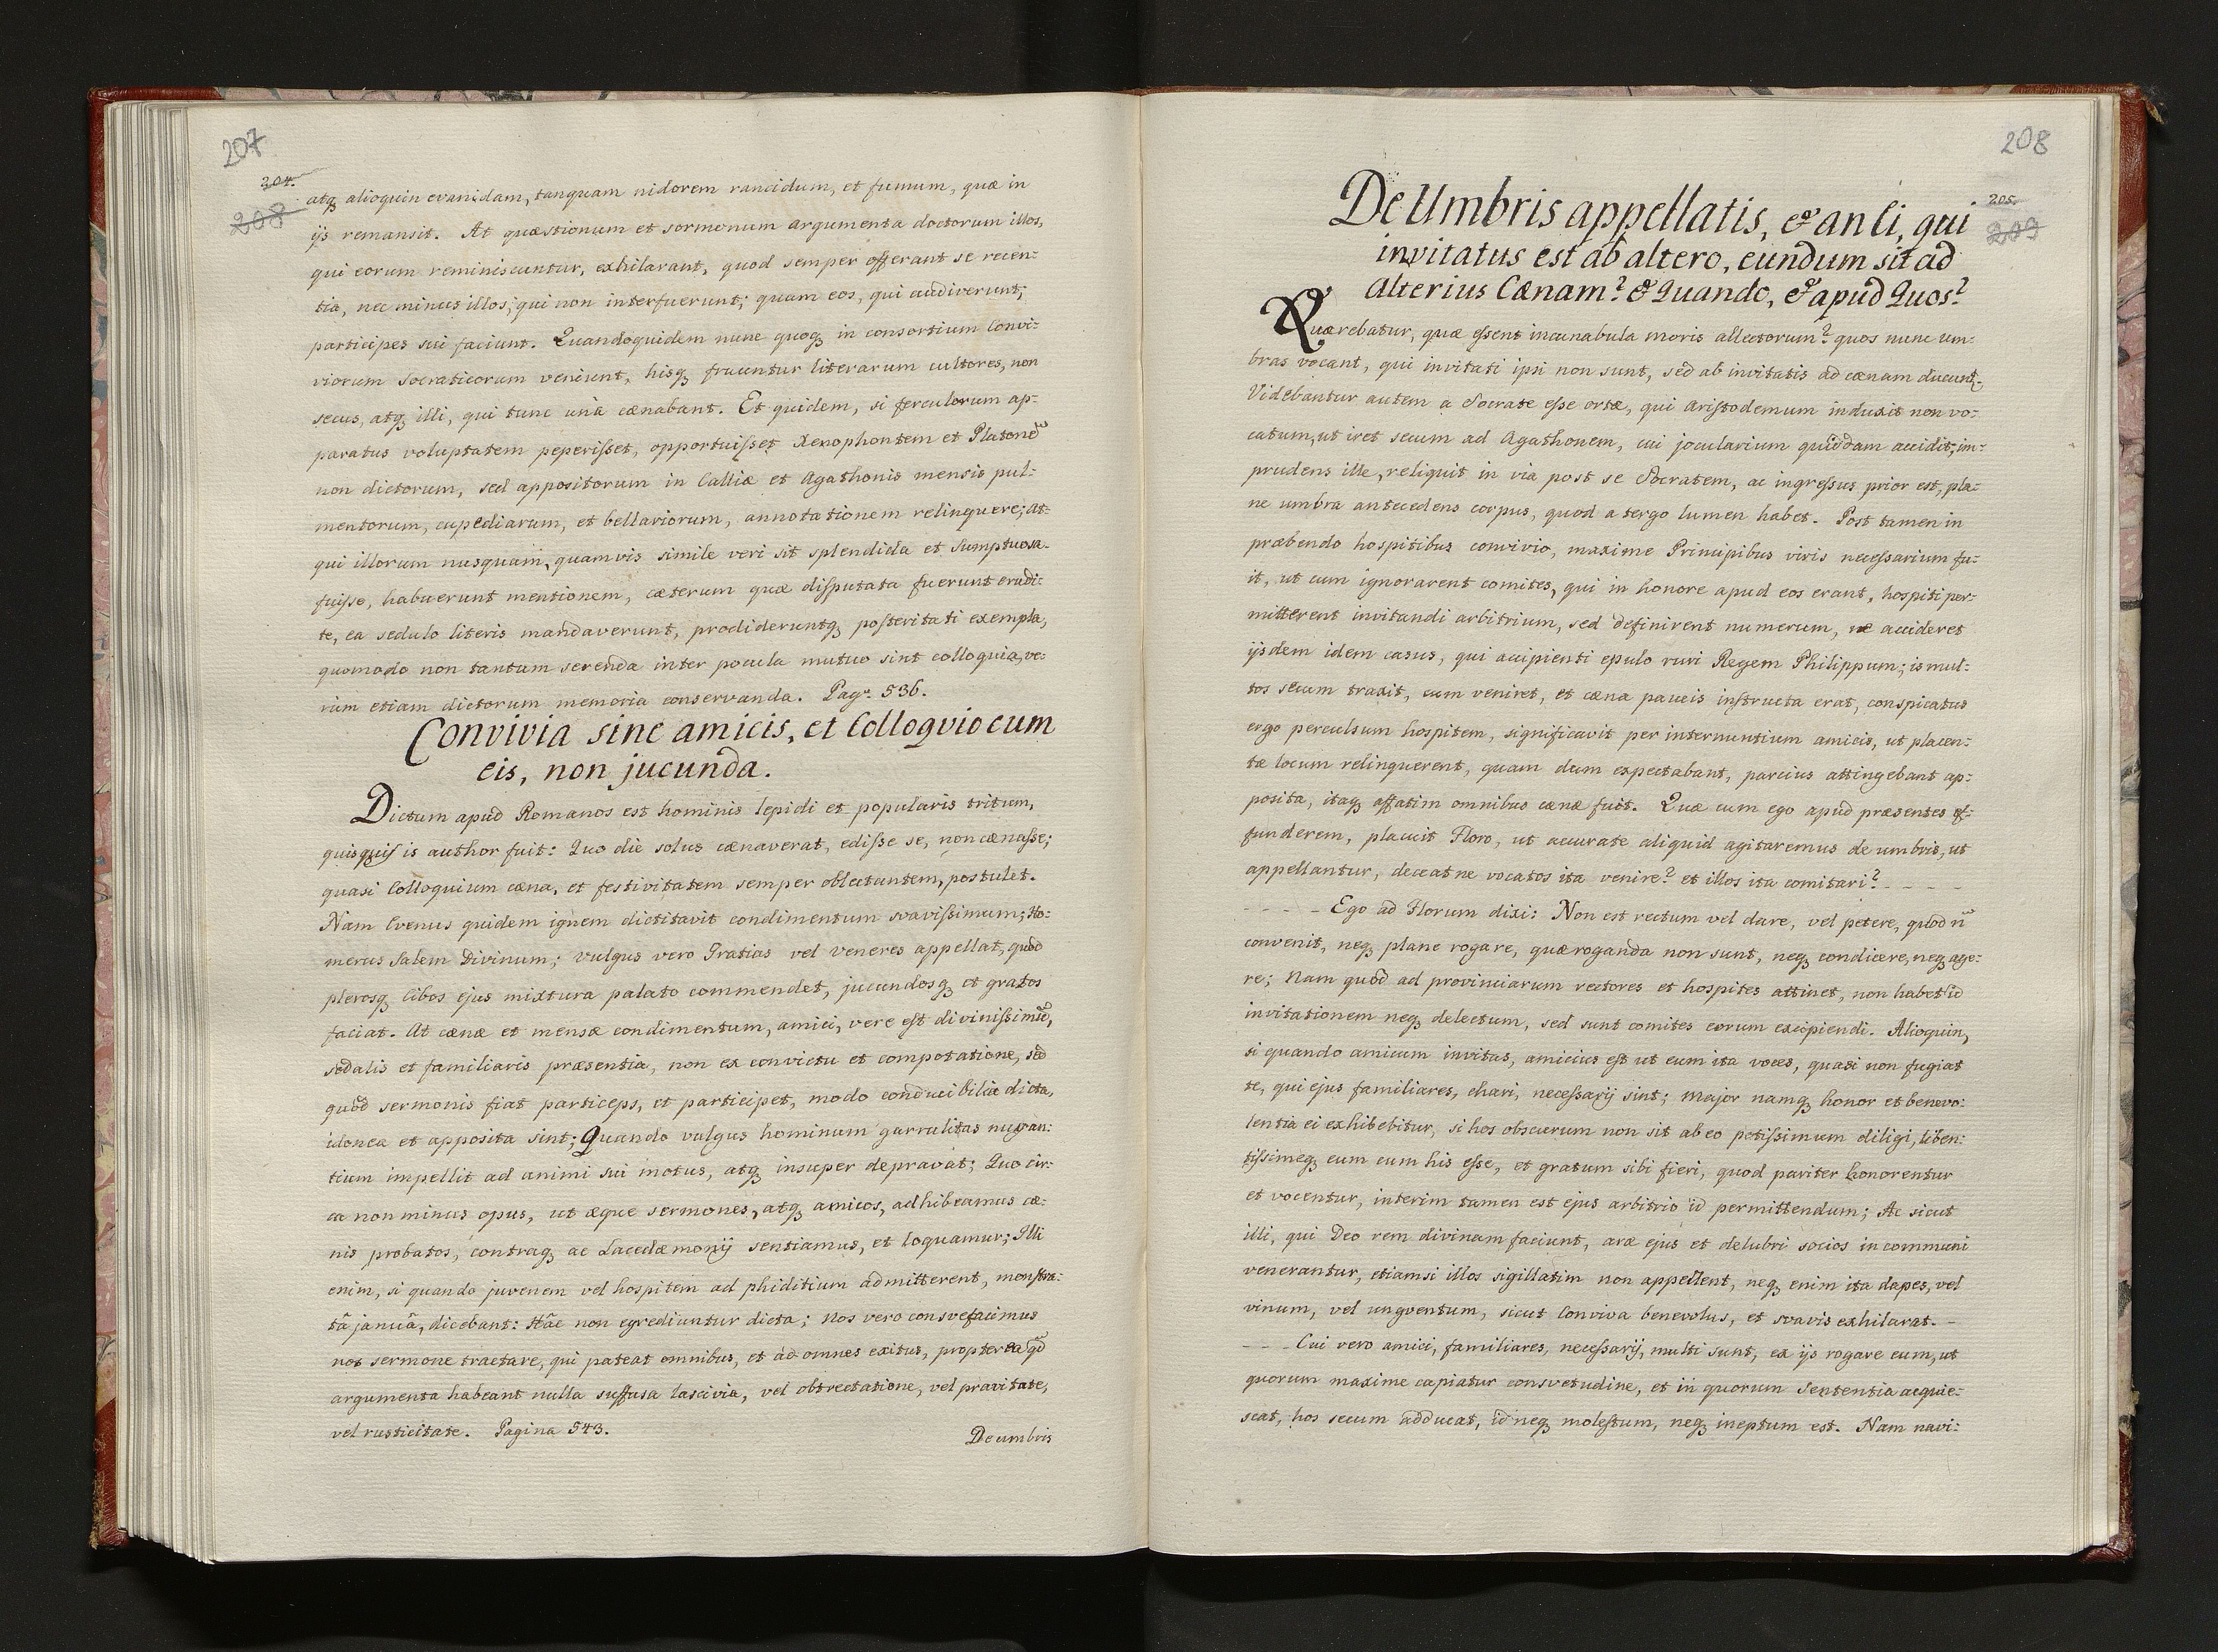 207
204.
208
atq alioquin evanidam, tanquam nidorem rancidum, et fumum, quæ in
ijs remansit. At quæstionum et sermonum argumenta doctorum illos,
qui eorum reminiscuntur, exhilarant, quod semper offerant se recen:
tia, nec minus illos, qui non interfuerunt; quam eos, qui audiverunt,
participes sui faciunt. Quandoquidem nunc quoq in consortium Convi:
viorum Socraticorum veniunt, hisq fruuntur literarum cultores, non
secus, atq illi, qui tunc unà cænabant. Et quidem, si ferculorum ap:
paratus voluptatem peperisset, opportuisset Xenophontem et Platonẽ
non dictorum, sed appositorum in Calliæ et Agathonis mensis pul:
mentorum, cupediarum, et bellariorum, annotationem relinquere; at:
qui illorum nusquam, quamvis simile veri sit splendida et Sumptuosa
fuisse, habuerunt mentionem, cæterum quæ disputata fuerunt erudi:
te, ea sedulo literis mandaverunt, prodideruntq posteritati exempla,
quomodo non tantum serenda inter pocula mutuo sint colloquia, ve:
rùm etiam dictorum memoria conservanda. Pag. 536.
Convivia sine amicis, et Colloqvio cum
eis, non jucunda.
Dictum apud Romanos est hominis lepidi et popularis tritum,
quisquis is author fuit: Quo die solus cænaverat, edisse se, non cænasse;
quasi Colloquium cæna, et festivitatem semper oblectantem, postulet.
Nam Evenus quidem ignem dictitavit condimentum svavissimum; Ho:
merus Salem Divinum; vulgus vero Gratias vel veneres appellat, quod
plerosq Cibos ejus mixtura palato commendet, jucundosq et gratos
faciat. At cænæ et mensæ condimentum, amici, vere est divinissimũ,
sodalis et familiaris præsentia, non ex convictu et compotatione, sed
quod sermonis fiat particeps, et participet, modo conducibilia dicta,
idonea et apposita sint; Quando vulgus hominum garrulitas nugan:
tium impellit ad animi sui motus, atq insuper depravat; Quo cir:
ca non minus opus, ut æque sermones, atq amicos, adhibeamus cæ:
nis probatos, contraq ac Lacedæmonij sentiamus, et loquamur; Illi
enim, si quando juvenem vel hospitem ad phiditium admitterent, monstra:
tâ januâ, dicebant: Hâc non egrediuntur dicta; Nos vero consvefacimus
nos sermone tractare, qui pateat omnibus, et ad omnes exitus, propterea qđ
argumenta habeant nulla suffusa lascivia, vel obtrectatione, vel pravitate,
vel rusticitate. Pagina 543.
De umbris
208
205.
209
De Umbris appellatis, & an ei, qui
invitatus est ab altero, eundum sit ad
Alterius Cænam? & Quando, & apud Quos?
Quærebatur, quæ essent incunabula moris allectorum? quos nunc um:
bras vocant, qui invitati ipsi non sunt, sed ab invitatis ad cænam ducunt.
Videbantur autem a Socrate esse ortæ, qui Aristodemum induxit non vo:
catum, ut iret secum ad Agathonem, cui jocularium quiddam accidit; im:
prudens ille, reliquit in via post se Socratem, ac ingressus prior est, pla:
ne umbra antecedens corpus, quod a tergo lumen habet. Post tamen in
præbendo hospitibus convivio, maxime Principibus viris necessarium fu:
it, ut cum ignorarent comites, qui in honore apud eos erant, hospiti per:
mitterent invitandi arbitrium, sed definirent numerum, ne accideret
ijsdem idem casus, qui accipienti epulo ruri Regem Philippum; is mul:
tos secum traxit, cum veniret, et cæna paucis instructa erat, conspicatus
ergo perculsum hospitem, significavit per internuntium amicis, ut placen:
tæ locum relinquerent, quam dum expectabant, parcius attingebant ap:
posita, itaq affatim omnibus cænæ fuit. Quæ cum ego apud præsentes ef:
funderem, placuit Floro, ut accurate aliquid agitaremus de umbris, ut
appellantur, deceatne vocatos ita venire? et illos ita comitari? - - - -
- - - - Ego ad Florum dixi: Non est rectum vel dare, vel petere, quod ñ
convenit, neq plane rogare, quæ roganda non sunt, neq condicere, neq age:
re; Nam quod ad provinciarum rectores et hospites attinet, non habet id
invitationem neq delectum, sed sunt comites eorum excipiendi. Alioquin,
si quando amicum invitas, amicius est ut eum ita voces, quasi non fugiat
te, qui ejus familiares, chari, necessarij sint; Major namq honor et benevo:
lentia ei exhibebitur, si hos obscurum non sit ab eo potissimum diligi, liben:
tissimeq eum cum his esse, et gratum sibi fieri, quod pariter honorentur
et vocentur, interim tamen est ejus arbitrio id permittendum; Ac sicut
illi, qui Deo rem divinam faciunt, aræ ejus et delubri socios in communi
venerantur, etiamsi illos sigillatim non appellent, neq enim ita dapes, vel
vinum, vel ungventum, sicut Conviva benevolus, et svavis exhilarat. -
- - - Cui vero amici, familiares, necessarij, multi sunt, ex ijs rogare eum, ut
quorum maxime capiatur consvetudine, et in quorum Sententia acquie:
scat, hos secum adducat, id neq molestum, neq ineptum est. Nam navi: